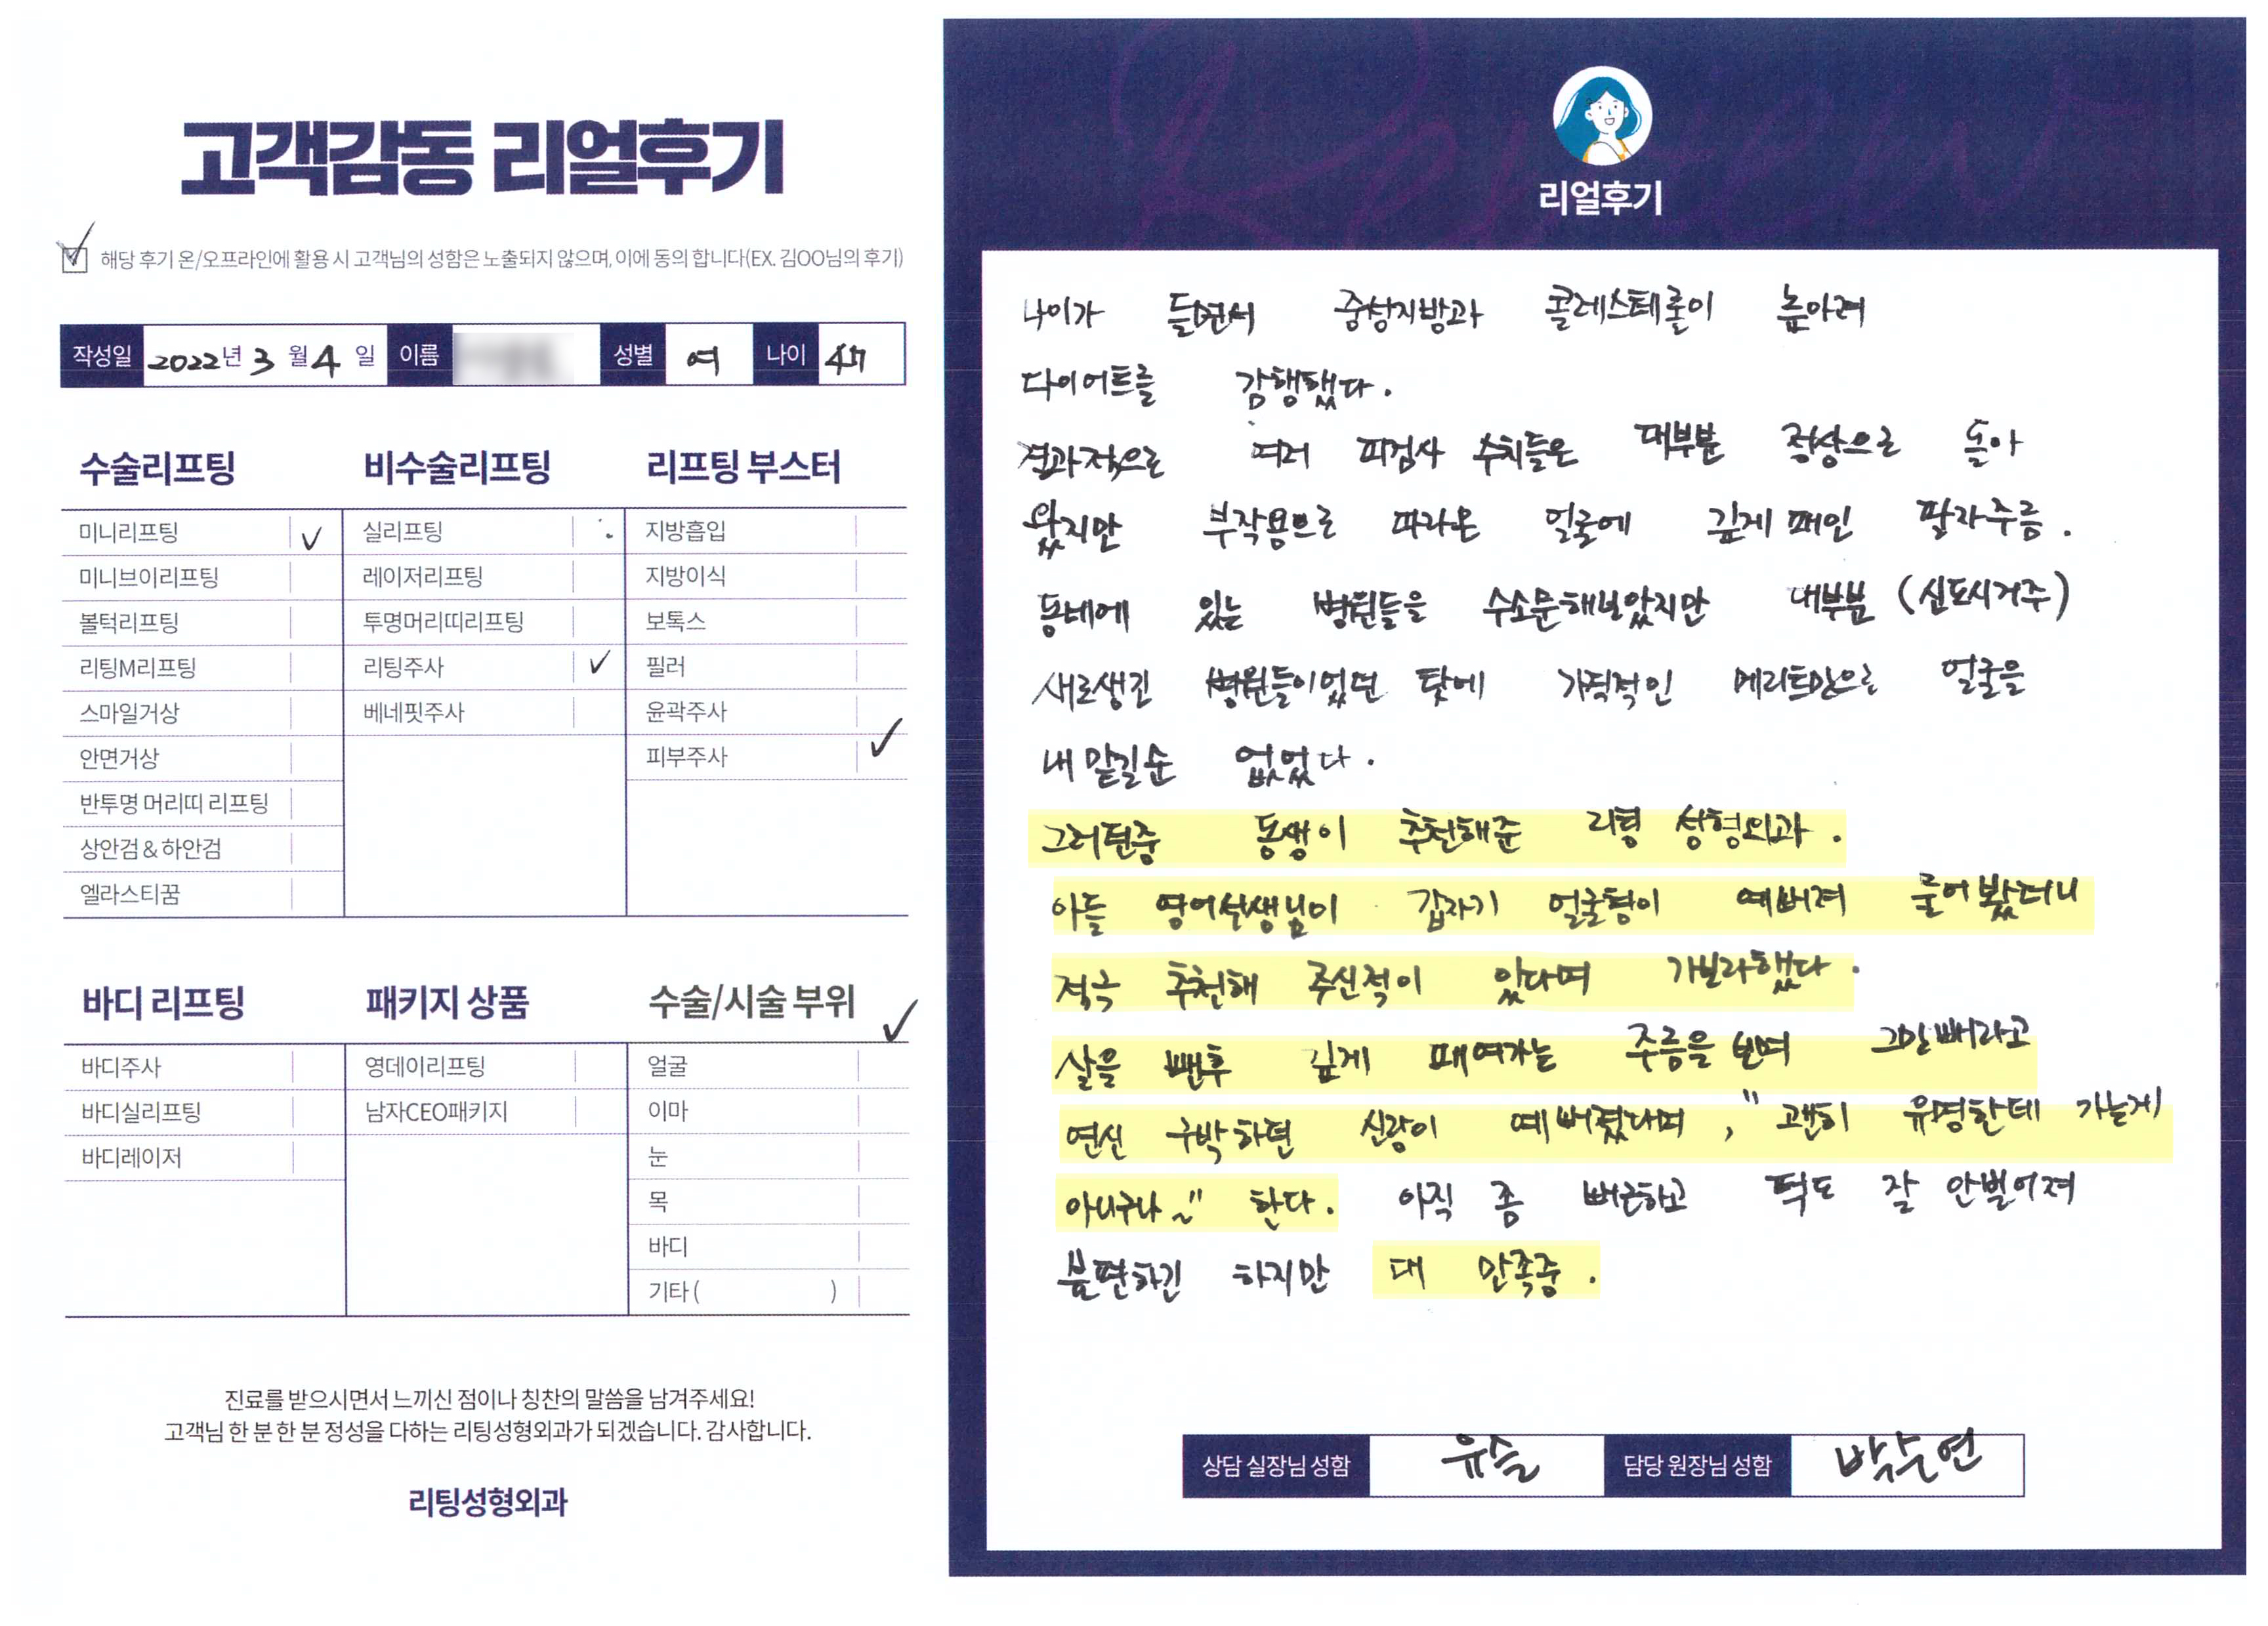 고객감동 리얼후기
해당 후기 온/오프라인에 활용 시 고객님의 성함은 노출되지 않으며, 이에 동의 합니다(EX. 김OO님의 후기)
작성일 2022년 3월 4일 이름 성별 여 나이 47
수술리프팅
미니리프팅
미니브이리프팅
볼턱리프팅
리팅M리프팅
스마일거상
안면거상
반투명 머리띠 리프팅
상안검 & 하안검
엘라스티꿈
비수술리프팅
실리프팅
레이저리프팅
투명머리띠리프팅
리팅주사
베네핏주사
리프팅 부스터
지방흡입
지방이식
보톡스
필러
윤곽주사
피부주사
바디 리프팅
바디주사
바디실리프팅
바디레이저
패키지 상품
영데이리프팅
남자CEO패키지
수술/시술 부위
얼굴
이마
눈
목
바디
기타 ( )
진료를 받으시면서 느끼신 점이나 칭찬의 말씀을 남겨주세요!
고객님 한 분 한 분 정성을 다하는 리팅성형외과가 되겠습니다. 감사합니다.
리팅성형외과
리얼후기
나이가 들면서 중성지방과 콜레스테롤이 높아져
다이어트를 감행했다.
결과적으로 여러 피검사 수치들은 대부분 정상으로 돌아
왔지만 부작용으로 따라온 얼굴에 깊게 패인 팔자주름.
동네에 있는 병원들을 수소문해보았지만 대부분 (신도시거주)
새로생긴 병원들이었던 탓에 가격적인 메리트만으로 얼굴을
내 맡길순 없었다.
그러던중 동생이 추천해준 리팅 성형외과.
아들 영어선생님이 갑자기 얼굴형이 예뻐져 물어봤더니
적극 추천해 주신적이 있다며 가보라했다.
살을 뺀후 깊게 패여가는 주름을 보며 그만빼라고
연신 구박하던 신랑이 예뻐졌다며, "괜히 유명한데 가는게
아니구나~" 한다. 아직 좀 뻐근하고 턱도 잘 안벌어져
불편하긴 하지만 대 만족중.
상담 실장님 성함 유슬 담당 원장님 성함 박수연